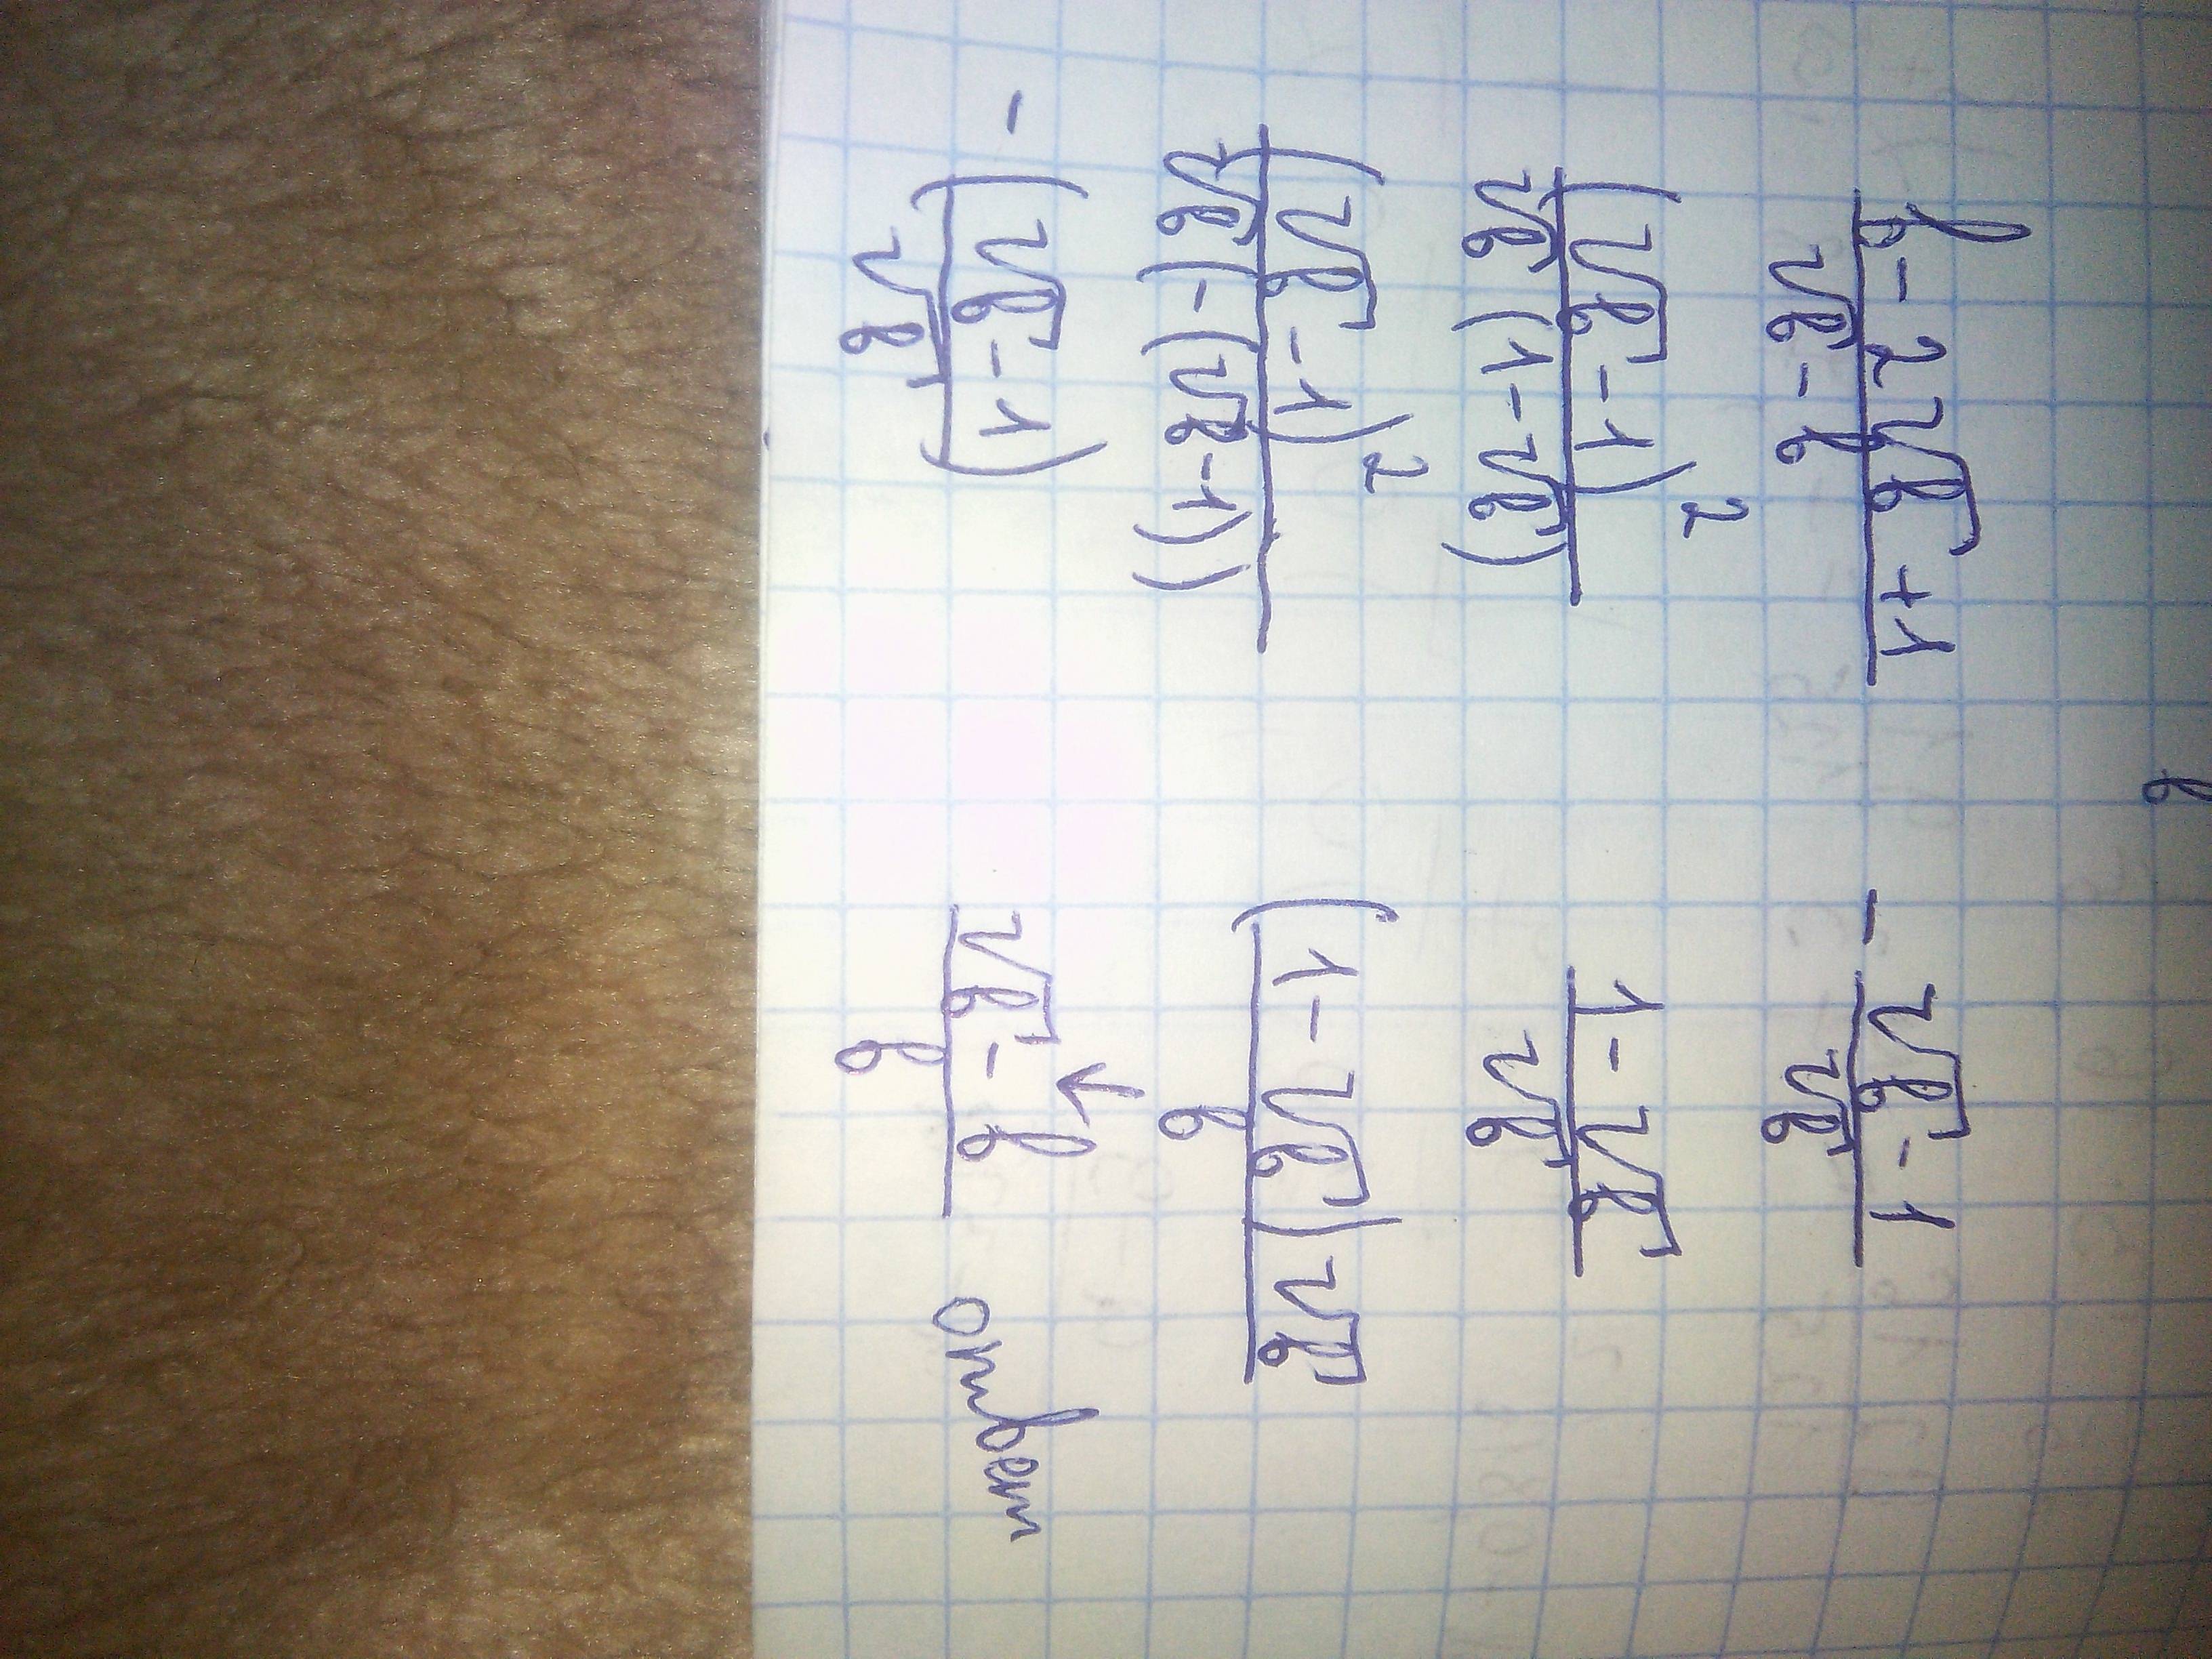 b
(b - 2√b + 1)/(√b - b)
(√b - 1)²/(√b(1 - √b))
(√b - 1)²/(√b(-(√b - 1)))
- (√b - 1)/√b
- (√b - 1)/√b
(1 - √b)/√b
(1 - √b)√b/b
↓
(√b - b)/b ответ